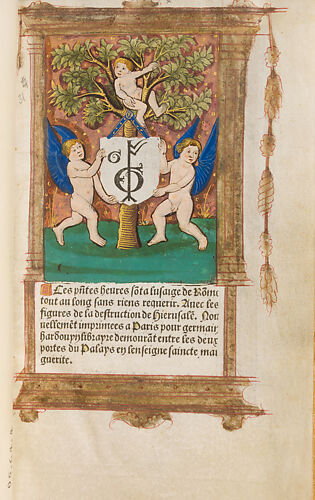 Les pñtes heures sõt a lusaige de Rõm̃
tout au long sans riens requerir. Auec les
figures de la destruction de Hierusalẽ. Nou
uellemẽt imprimees a Paris pour germain
hardouyn librayre demourãt entre les deux
portes du Palays en lenseigne saincte mar
guerite.